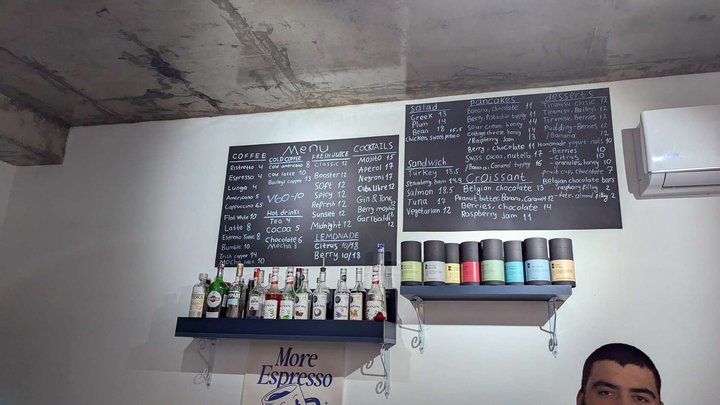 Menu
COFFEE
Ristretto 4
Espresso 4
Lungo 4
Americano 5
Cappuccino 6.5
Flat White 10
Latte 8
Espresso Tonic 8
Bumble 10
Irish coffee 14
Mocha latte 10
COLD COFFEE
Cold americano 8
Ice latte 10
Baileys coffee 13
Hot drinks
Tea 4
Cocoa 5
Chocolate 6
Mocha 8
FRESH JUICE
Classic 12
Booster 12
Soft 12
Spicy 12
Refresh 12
Sunset 12
Midnight 12
LEMONADE
Citrus 10/18
Berry 10/18
COCKTAILS
Mojito 15
Aperol 17
Negroni 17
Cuba Libre 12
Gin & Tonic 12
Berry mojito
Garibaldi 12
Salad
Greek 13
Plum 14
Bean 18
Sandwich
Turkey 13.5
Salmon 18.5
Tuna 17
Vegetarian 12
Pancakes
Banana, Chocolate 11
Berry, Pistachio
Sour cream, honey 14
Cottage cheese, honey 14
Berry, Chocolate 11
Swiss, Cocoa, nutella 17
Croissant
Belgian chocolate 13
Peanut butter, Banana, Caramel 12
Berries, chocolate 14
Raspberry Jam 11
desserts
Tiramisu Classic 13
Tiramisu, Baileys 12
Tiramisu, Berries 12
Pudding - Berries 12
/Banana 12
Homemade yogurt - nuts 10
- Berries 10
- Citrus 10
- granules, honey 10
Fruit cup, Chocolate 7
Belgian chocolate bars
More
Espresso